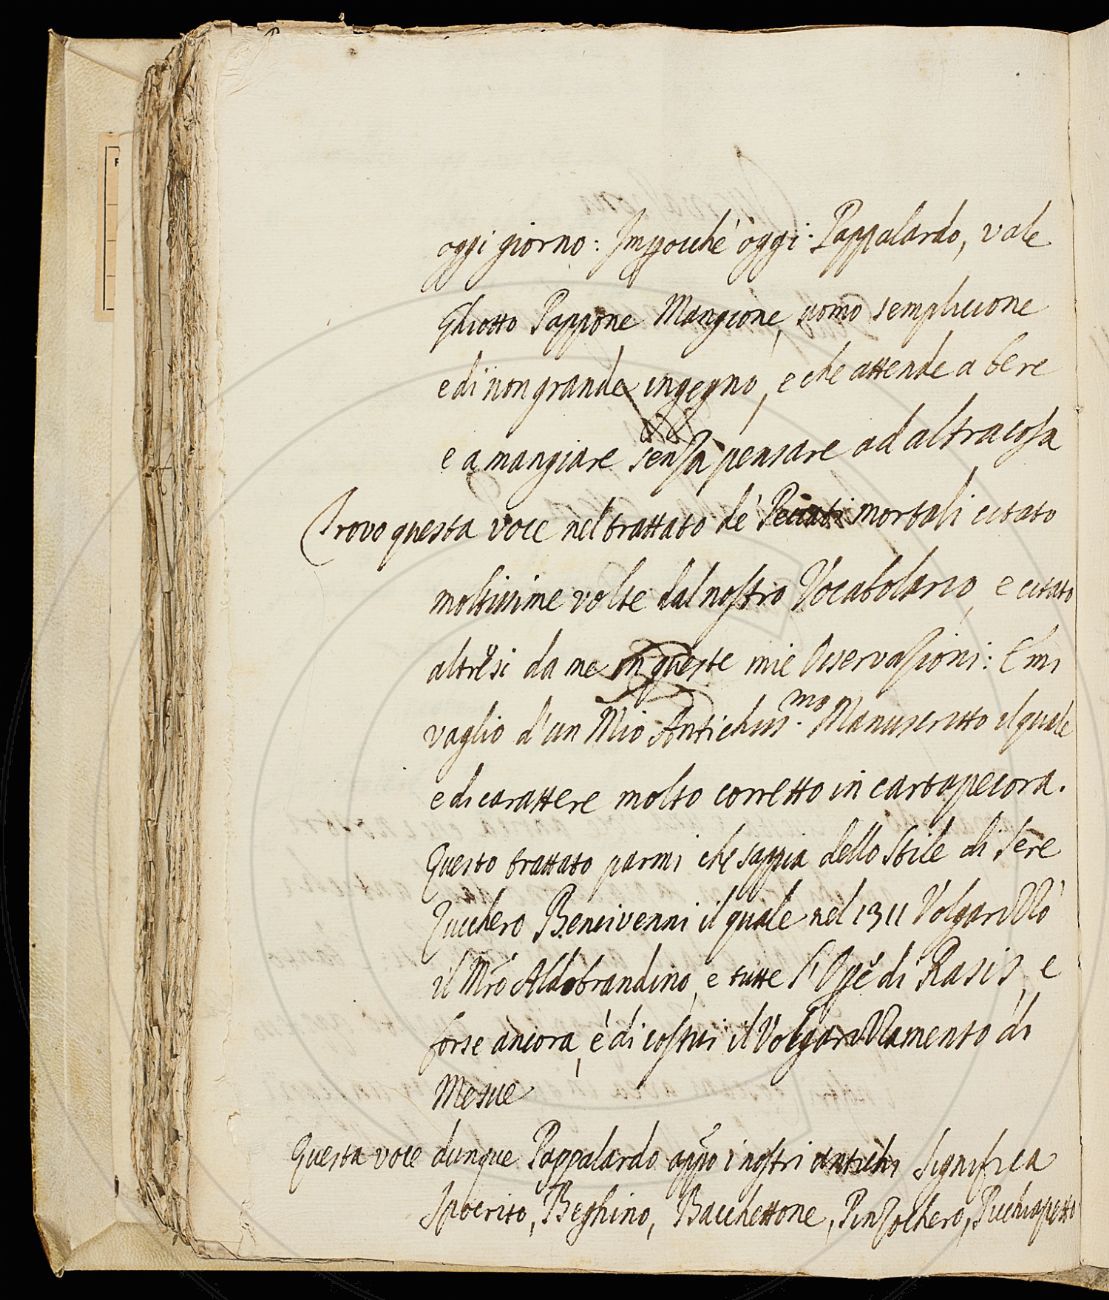 oggi giorno: Imperocché oggi Pappalardo, vale
Ghiotto Pappone Mangione, uomo semplicione
e di non grande ingegno, e che attende a bere
e a mangiare senza pensare ad altra cosa
Trovo questa voce nel trattato de' Peccati mortali citato
moltissime volte dal nostro Vocabolario, e citato
altresi da me in queste mie Osservazioni: E mi
vaglio d'un Mio Antichiss.mo Manuscritto il quale
e di carattere molto corretto in cartapecora.
Questo trattato parmi che sappia dello stile di Sere
Zucchero Bencivenni il quale nel 1311 Volgarizzò
il Mro Aldobrandino, e tutte l'Ope di Rasis, e
forse ancora, è di costui il Volgarizzamento di
Mesue
Questa voce dunque Pappalardo appo i nostri antichi significa
Ipocrito, Beghino, Bacchettone, Pinzochero, Picchiapetto